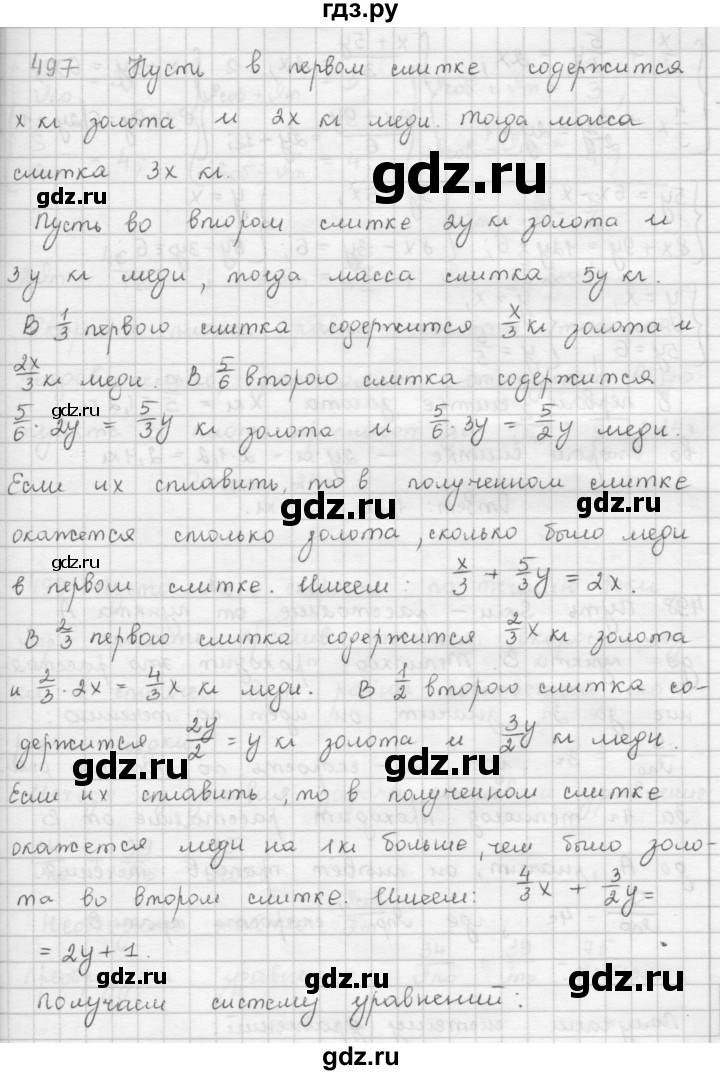 гдз.ру
497 Пусть в первом слитке содержится
x кг золота и 2x кг меди. Тогда масса
слитка 3x кг.
gdz.ru
gdz.ru
Пусть во втором слитке 2y кг золота и
3y кг меди, тогда масса слитка 5y кг.
В 1/3 первого слитка содержится x/3 кг золота и
2x/3 кг меди. В 5/6 второго слитка содержится
gdz.ru
5/6 · 2y = 5/3 y кг золота и 5/6 · 3y = 5/2 y меди.
gdz.ru
Если их сплавить, то в полученном слитке
gdz.ru
окажется столько золота, сколько было меди
gdz.ru
в первом слитке. Имеем: x/3 + 5/3 y = 2x.
В 2/3 первого слитка содержится 2/3 x кг золота
gdz.ru
и 2/3 · 2x = 4/3 x кг меди. В 1/2 второго слитка со-
держится 2y/2 = y кг золота и 3/2 y кг меди.
gdz.ru
gdz.ru
Если их сплавить, то в полученном слитке
окажется меди на 1 кг больше, чем было золо-
та во втором слитке. Имеем: 4/3 x + 3/2 y =
= 2y + 1.
gdz.ru
gdz.ru
Получаем систему уравнений:
gdz.ru